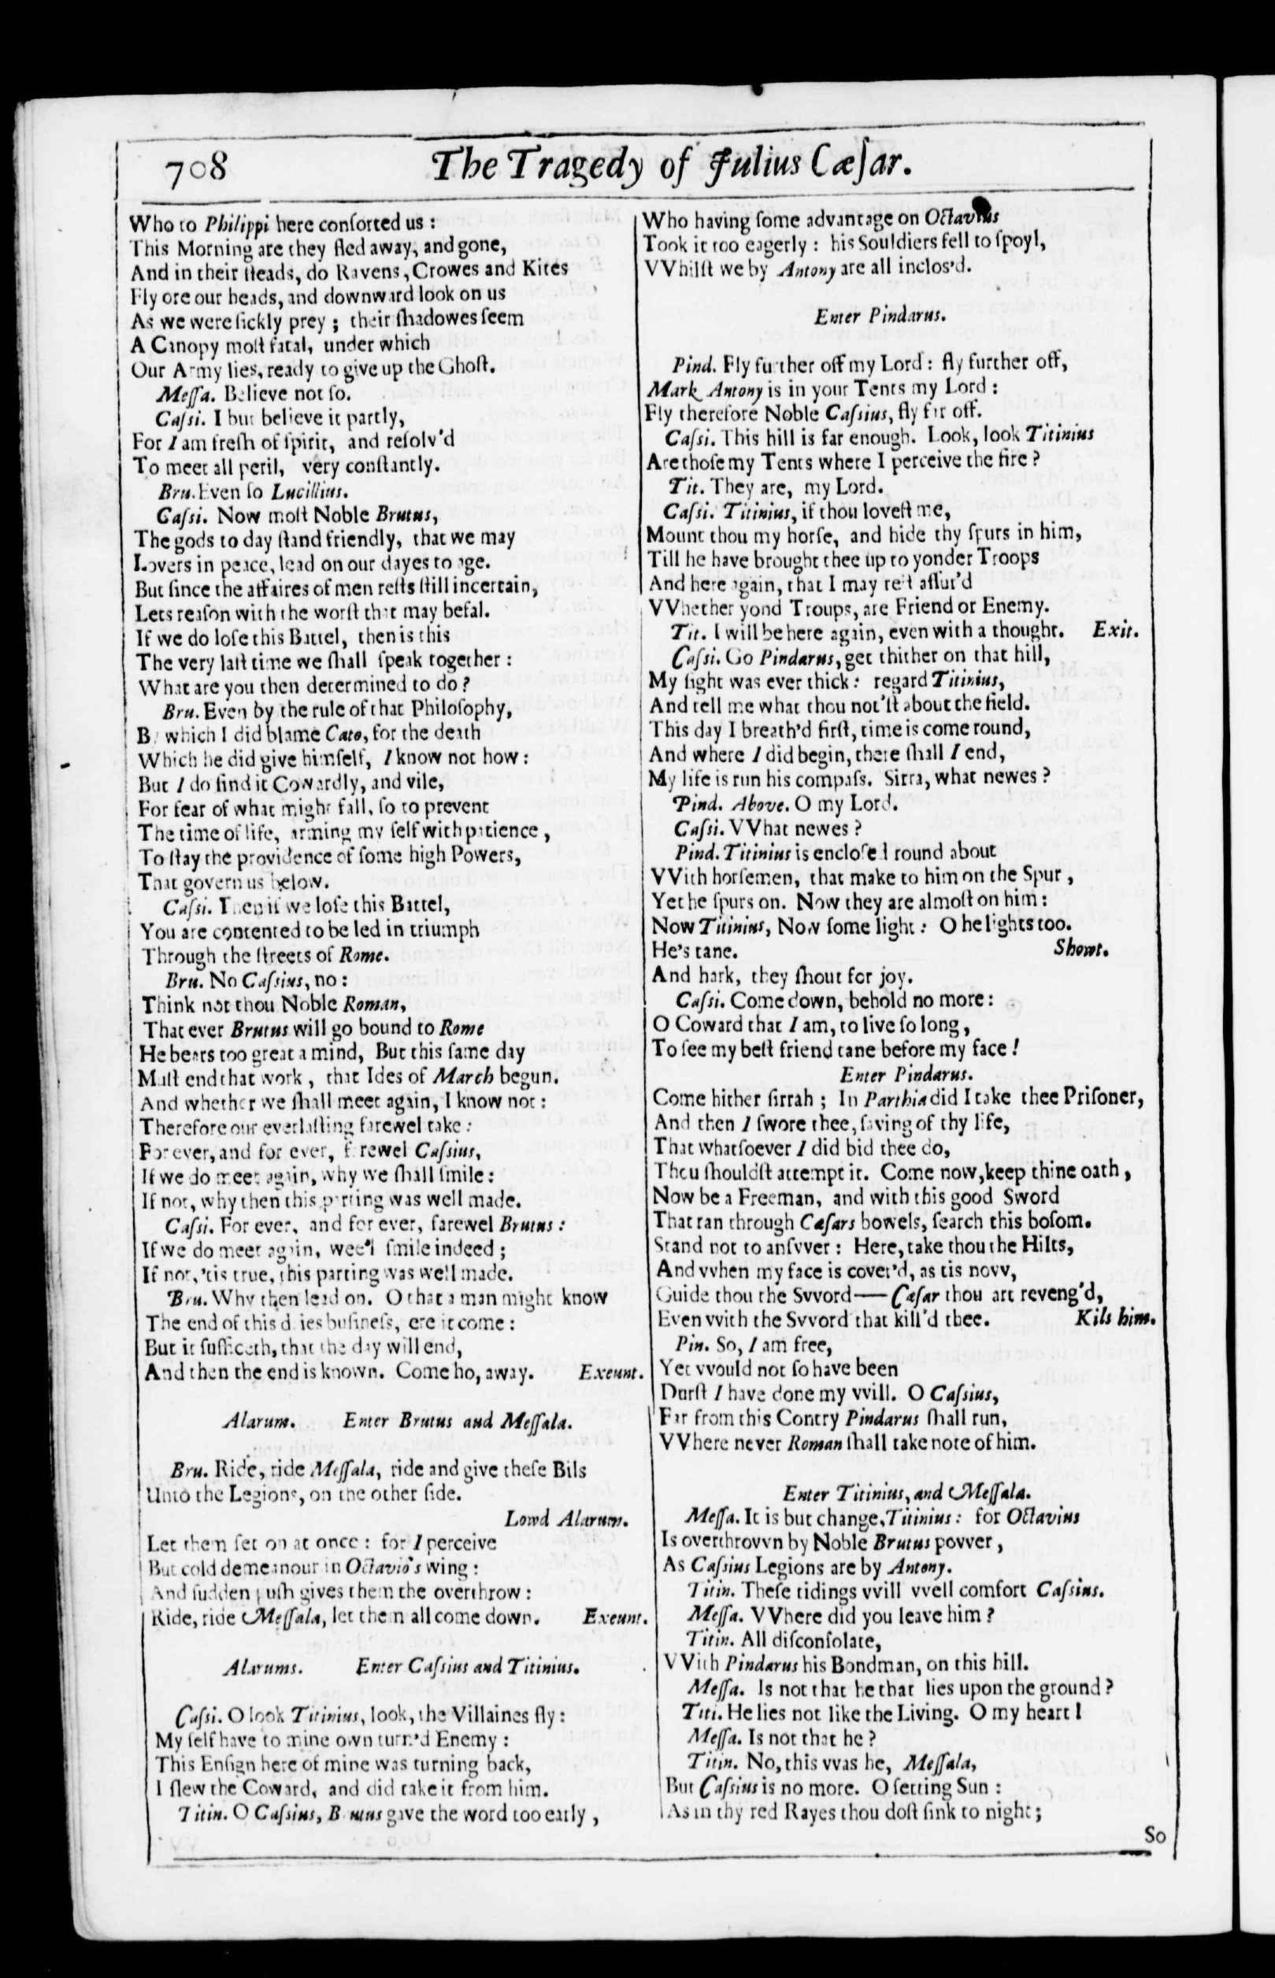 708
The Tragedy of Julius Cæſar.
Who to Philippi here conſorted us :
This Morning are they fled away, and gone,
And in their ſteads, do Ravens, Crowes and Kites
Fly ore our heads, and downward look on us
As we were ſickly prey ; their ſhadowes ſeem
A Canopy moſt fatal, under which
Our Army lies, ready to give up the Ghoſt.
Meſſa. Believe not ſo.
Caſsi. I but believe it partly,
For I am freſh of ſpirit, and reſolv'd
To meet all peril, very conſtantly.
Bru. Even ſo Lucillius.
Caſsi. Now moſt Noble Brutus,
The gods to day ſtand friendly, that we may
Lovers in peace, lead on our dayes to age.
But ſince the affaires of men reſts ſtill incertain,
Lets reaſon with the worſt that may befal.
If we do loſe this Battel, then is this
The very laſt time we ſhall ſpeak together :
What are you then determined to do ?
Bru. Even by the rule of that Philoſophy,
By which I did blame Cato, for the death
Which he did give himſelf, I know not how :
But I do find it Cowardly, and vile,
For fear of what might fall, ſo to prevent
The time of life, arming my ſelf with patience ,
To ſtay the providence of ſome high Powers,
That govern us below.
Caſsi. Then if we loſe this Battel,
You are contented to be led in triumph
Through the ſtreets of Rome.
Bru. No Caſsius, no :
Think not thou Noble Roman,
That ever Brutus will go bound to Rome
He bears too great a mind, But this ſame day
Muſt end that work , that Ides of March begun.
And whether we ſhall meet again, I know not :
Therefore our everlaſting farewel take :
For ever, and for ever, farewel Caſsius,
If we do meet again, why we ſhall ſmile :
If not, why then this parting was well made.
Caſsi. For ever, and for ever, farewel Brutus :
If we do meet again, wee'l ſmile indeed ;
If not, 'tis true, this parting was well made.
Bru. Why then lead on. O that a man might know
The end of this dáies buſineſs, ere it come :
But it ſufficeth, that the day will end,
And then the end is known. Come ho, away. Exeunt.
Alarum. Enter Brutus and Meſſala.
Bru. Ride, ride Meſſala, ride and give theſe Bils
Unto the Legions, on the other ſide.
Lowd Alarum.
Let them ſet on at once : for I perceive
But cold demeanour in Octavio's wing :
And ſudden puſh gives them the overthrow :
Ride, ride Meſſala, let them all come down. Exeunt.
Alarums. Enter Caſsius and Titinius.
Caſsi. O look Titinius, look, the Villaines fly :
My ſelf have to mine own turn'd Enemy :
This Enſign here of mine was turning back,
I ſlew the Coward, and did take it from him.
Titin. O Caſsius, Brutus gave the word too early ,
Who having ſome advantage on Octavius
Took it too eagerly : his Souldiers fell to ſpoyl,
VVhilſt we by Antony are all inclos'd.
Enter Pindarus.
Pind. Fly further off my Lord : fly further off,
Mark Antony is in your Tents my Lord :
Fly therefore Noble Caſsius, fly far off.
Caſsi. This hill is far enough. Look, look Titinius
Are thoſe my Tents where I perceive the fire ?
Tit. They are, my Lord.
Caſsi. Titinius, if thou loveſt me,
Mount thou my horſe, and hide thy ſpurs in him,
Till he have brought thee up to yonder Troops
And here again, that I may reſt aſſur'd
VVhether yond Troups, are Friend or Enemy.
Tit. I will be here again, even with a thought. Exit.
Caſsi. Go Pindarus, get thither on that hill,
My ſight was ever thick : regard Titinius,
And tell me what thou not'ſt about the field.
This day I breath'd firſt, time is come round,
And where I did begin, there ſhall I end,
My life is run his compaſs. Sirra, what newes ?
Pind. Above. O my Lord.
Caſsi. VVhat newes ?
Pind. Titinius is encloſed round about
VVith horſemen, that make to him on the Spur ,
Yet he ſpurs on. Now they are almoſt on him :
Now Titinius, Now ſome light : O he lights too.
He's tane. Showt.
And hark, they ſhout for joy.
Caſsi. Come down, behold no more :
O Coward that I am, to live ſo long ,
To ſee my beſt friend tane before my face !
Enter Pindarus.
Come hither ſirrah ; In Parthia did I take thee Priſoner,
And then I ſwore thee, ſaving of thy life,
That whatſoever I did bid thee do,
Thou ſhouldſt attempt it. Come now, keep thine oath ,
Now be a Freeman, and with this good Sword
That ran through Cæſars bowels, ſearch this boſom.
Stand not to anſvver : Here, take thou the Hilts,
And vvhen my face is cover'd, as tis novv,
Guide thou the Svvord—— Cæſar thou art reveng'd,
Even vvith the Svvord that kill'd thee. Kils him.
Pin. So, I am free,
Yet vvould not ſo have been
Durſt I have done my vvill. O Caſsius,
Far from this Contry Pindarus ſhall run,
VVhere never Roman ſhall take note of him.
Enter Titinius, and Meſſala.
Meſſa. It is but change, Titinius : for Octavius
Is overthrovvn by Noble Brutus povver ,
As Caſsius Legions are by Antony.
Titin. Theſe tidings vvill vvell comfort Caſsius.
Meſſa. VVhere did you leave him ?
Titin. All diſconſolate,
VVith Pindarus his Bondman, on this hill.
Meſſa. Is not that he that lies upon the ground ?
Titi. He lies not like the Living. O my heart !
Meſſa. Is not that he ?
Titin. No, this vvas he, Meſſala,
But Caſsius is no more. O ſetting Sun :
As in thy red Rayes thou doſt ſink to night ;
So